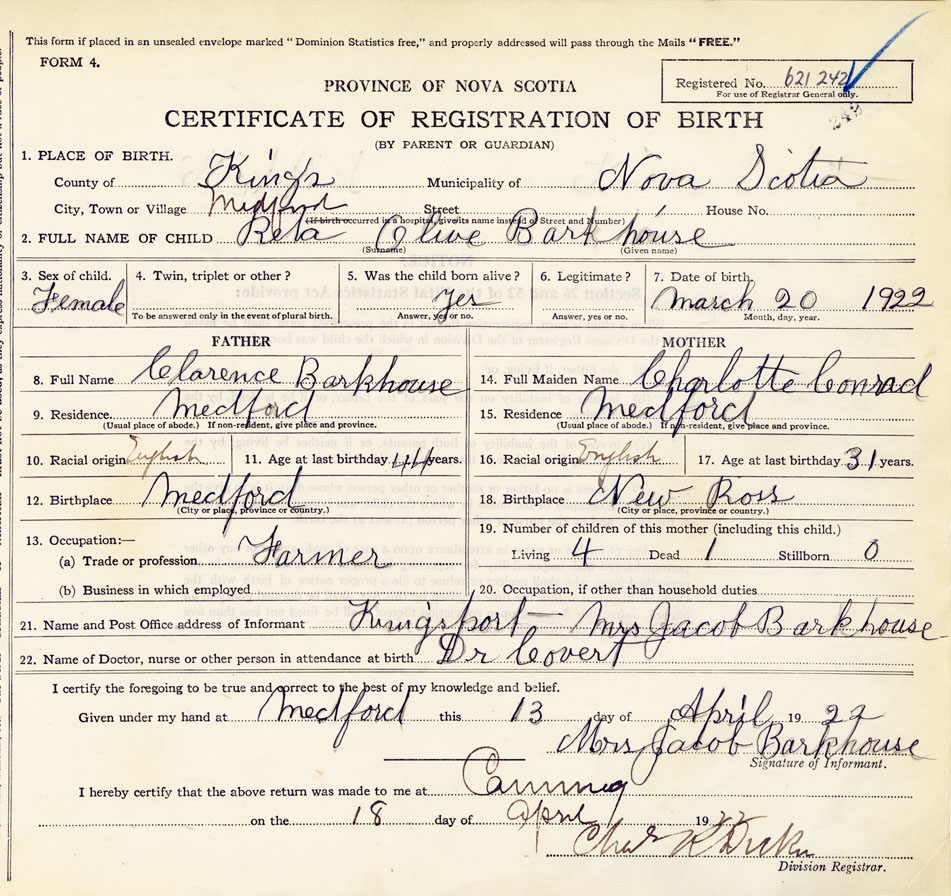 This form if placed in an unsealed envelope marked "Dominion Statistics free," and properly addressed will pass through the Mails "FREE."
FORM 4.
Registered No. 621 242
For use of Registrar General only.
242
PROVINCE OF NOVA SCOTIA
CERTIFICATE OF REGISTRATION OF BIRTH
(BY PARENT OR GUARDIAN)
1. PLACE OF BIRTH.
County of King's Municipality of Nova Scotia
City, Town or Village Medford Street House No.
(If birth occurred in a hospital, give its name instead of Street and Number)
2. FULL NAME OF CHILD Reta Olive Barkhouse
(Surname) (Given name)
3. Sex of child. Female
4. Twin, triplet or other?
To be answered only in the event of plural birth.
5. Was the child born alive? Yes
Answer, yes or no.
6. Legitimate?
Answer, yes or no.
7. Date of birth. March 20 1922
Month, day, year.
FATHER
8. Full Name Clarence Barkhouse
9. Residence Medford
(Usual place of abode.) If non-resident, give place and province.
10. Racial origin English 11. Age at last birthday 44 years.
12. Birthplace Medford
(City or place, province or country.)
13. Occupation:—
(a) Trade or profession Farmer
(b) Business in which employed
MOTHER
14. Full Maiden Name Charlotte Conrad
15. Residence Medford
(Usual place of abode.) If non-resident, give place and province.
16. Racial origin English 17. Age at last birthday 31 years.
18. Birthplace New Ross
(City or place, province or country.)
19. Number of children of this mother (including this child.)
Living 4 Dead 1 Stillborn 0
20. Occupation, if other than household duties
21. Name and Post Office address of Informant Kingsport Mrs Jacob Barkhouse
22. Name of Doctor, nurse or other person in attendance at birth Dr Covert
I certify the foregoing to be true and correct to the best of my knowledge and belief.
Given under my hand at Medford this 13 day of April 1922
Mrs Jacob Barkhouse
Signature of Informant.
I hereby certify that the above return was made to me at Canning
on the 18 day of April 1922
Chas R
Division Registrar.